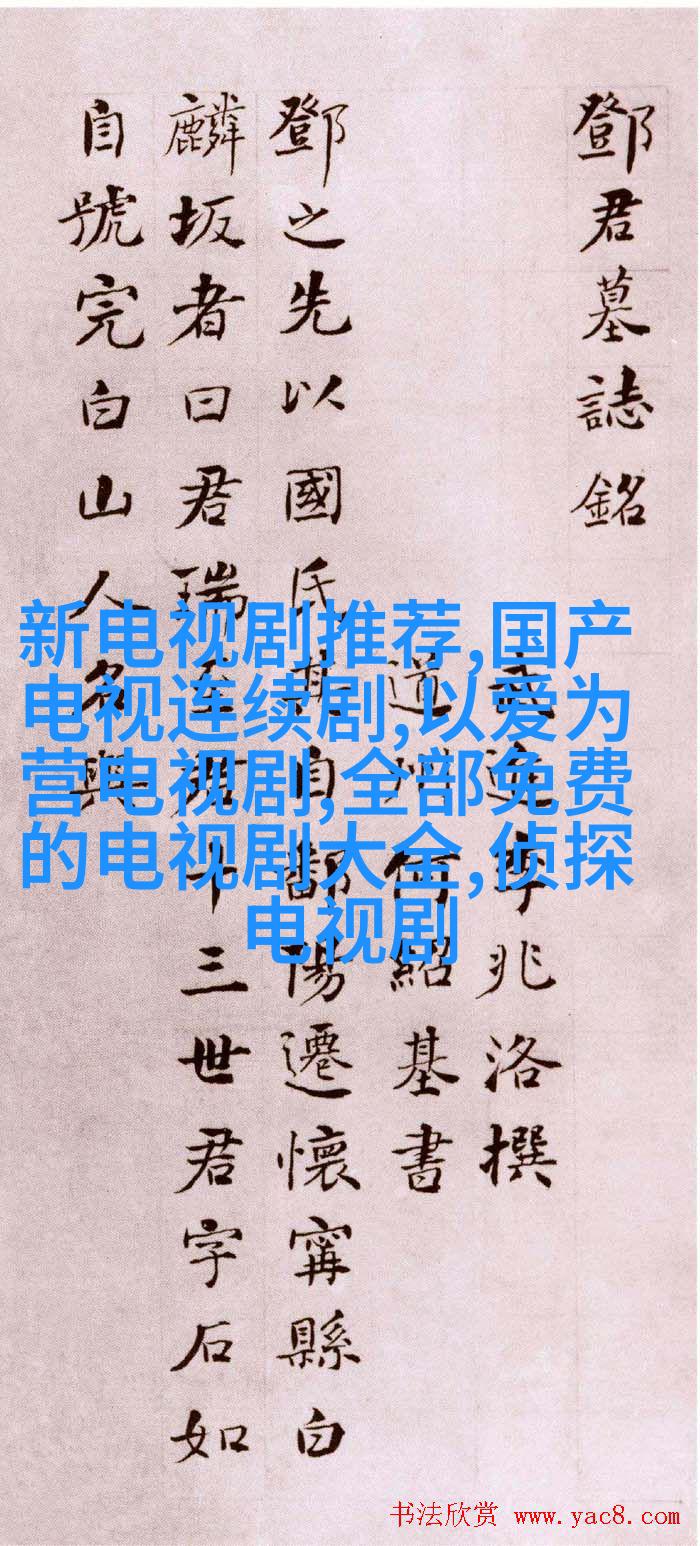 鄧君墓誌銘
武進李兆洛撰
道州何紹基書
鄧之先以國氏其自鄱陽遷懷寗縣白
麟坂者曰君瑞至君十三世君字石如
自號完白山人名與
新电视剧推荐,国产
电视连续剧,以爱为
营电视剧,全部免费
的电视剧大全,侦探
电视剧
书法欣赏 www.yac8.com